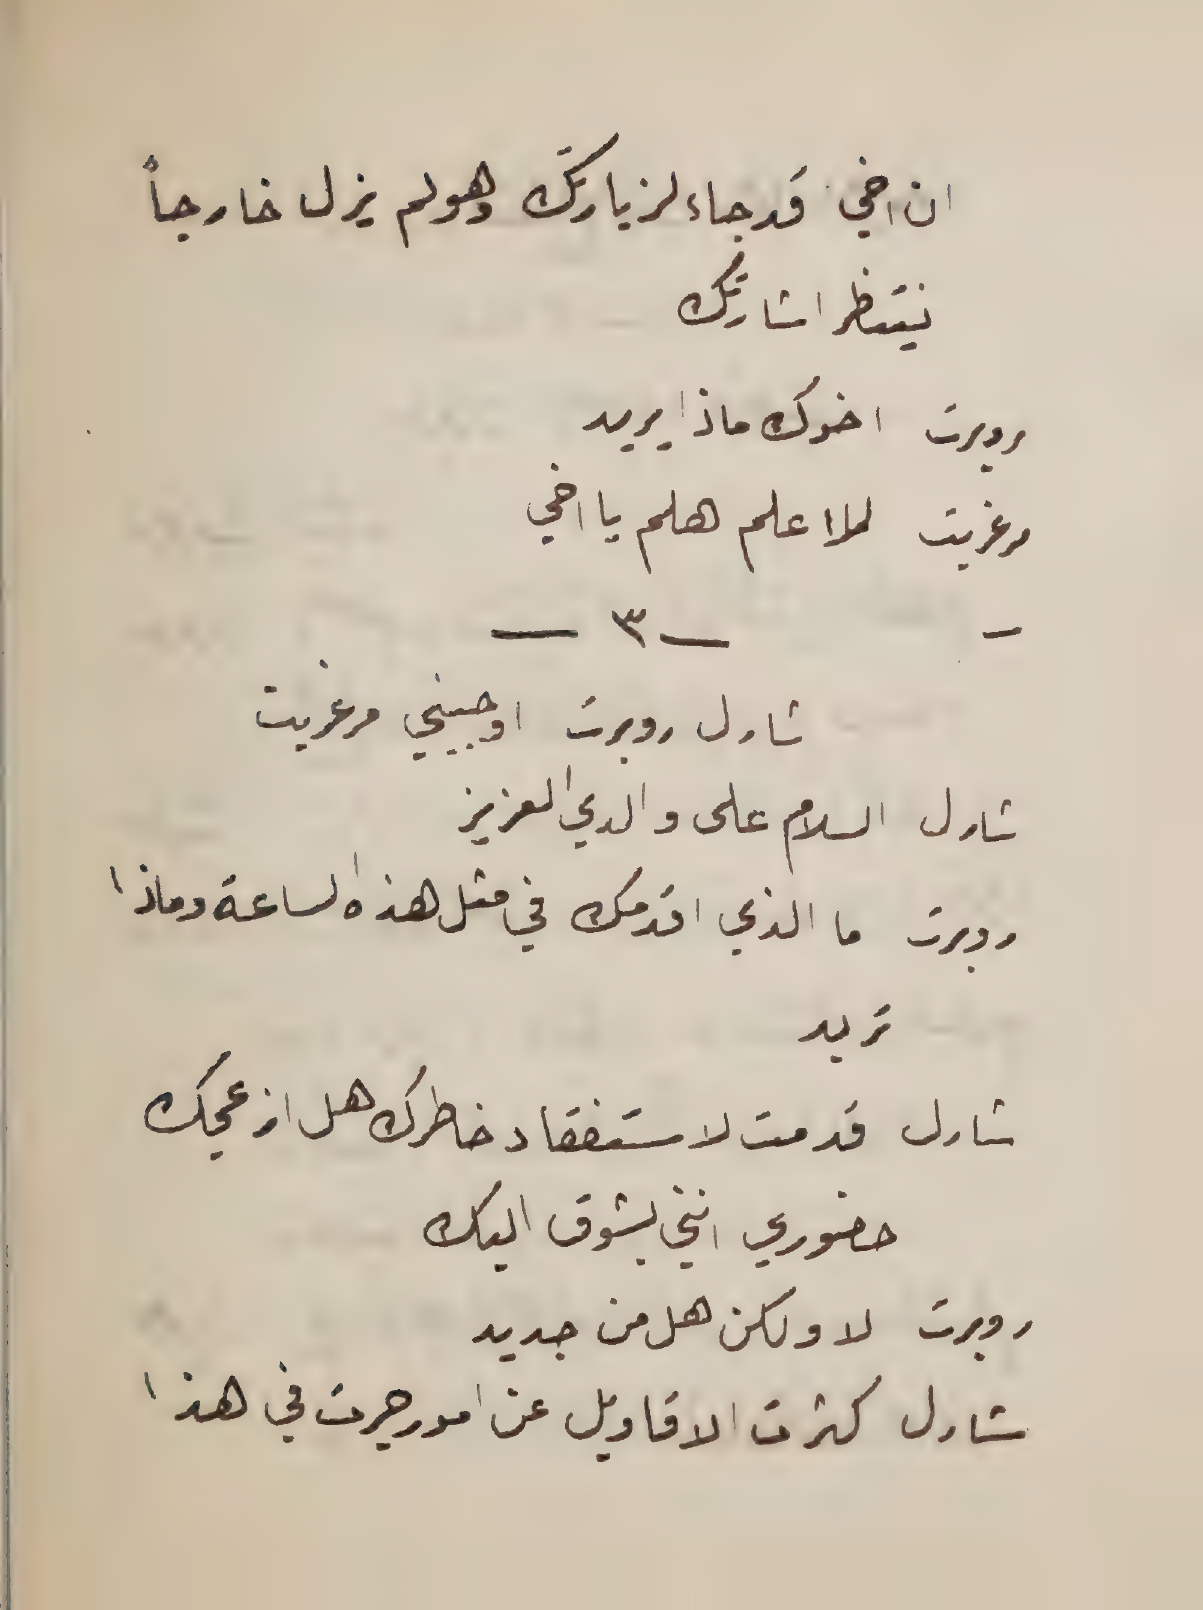 ان اخي قد جاء لزيارتك وهو لم يزل خارجاً
ينتظر اشارتك
روبرت اخوك ماذا يريد
مرغريت لا اعلم هلم يا اخي
— ٣ —
شارل روبرت اوجيني مرغريت
شارل السلام على والدي العزيز
روبرت ما الذي اقدمك في مثل هذه الساعة وماذا
تريد
شارل قدمت لاستفقاد خاطرك هل ازعجك
حضوري انني بشوق اليك
روبرت لا ولكن هل من جديد
شارل كثرت الاقاويل عن امور جرت في هذا